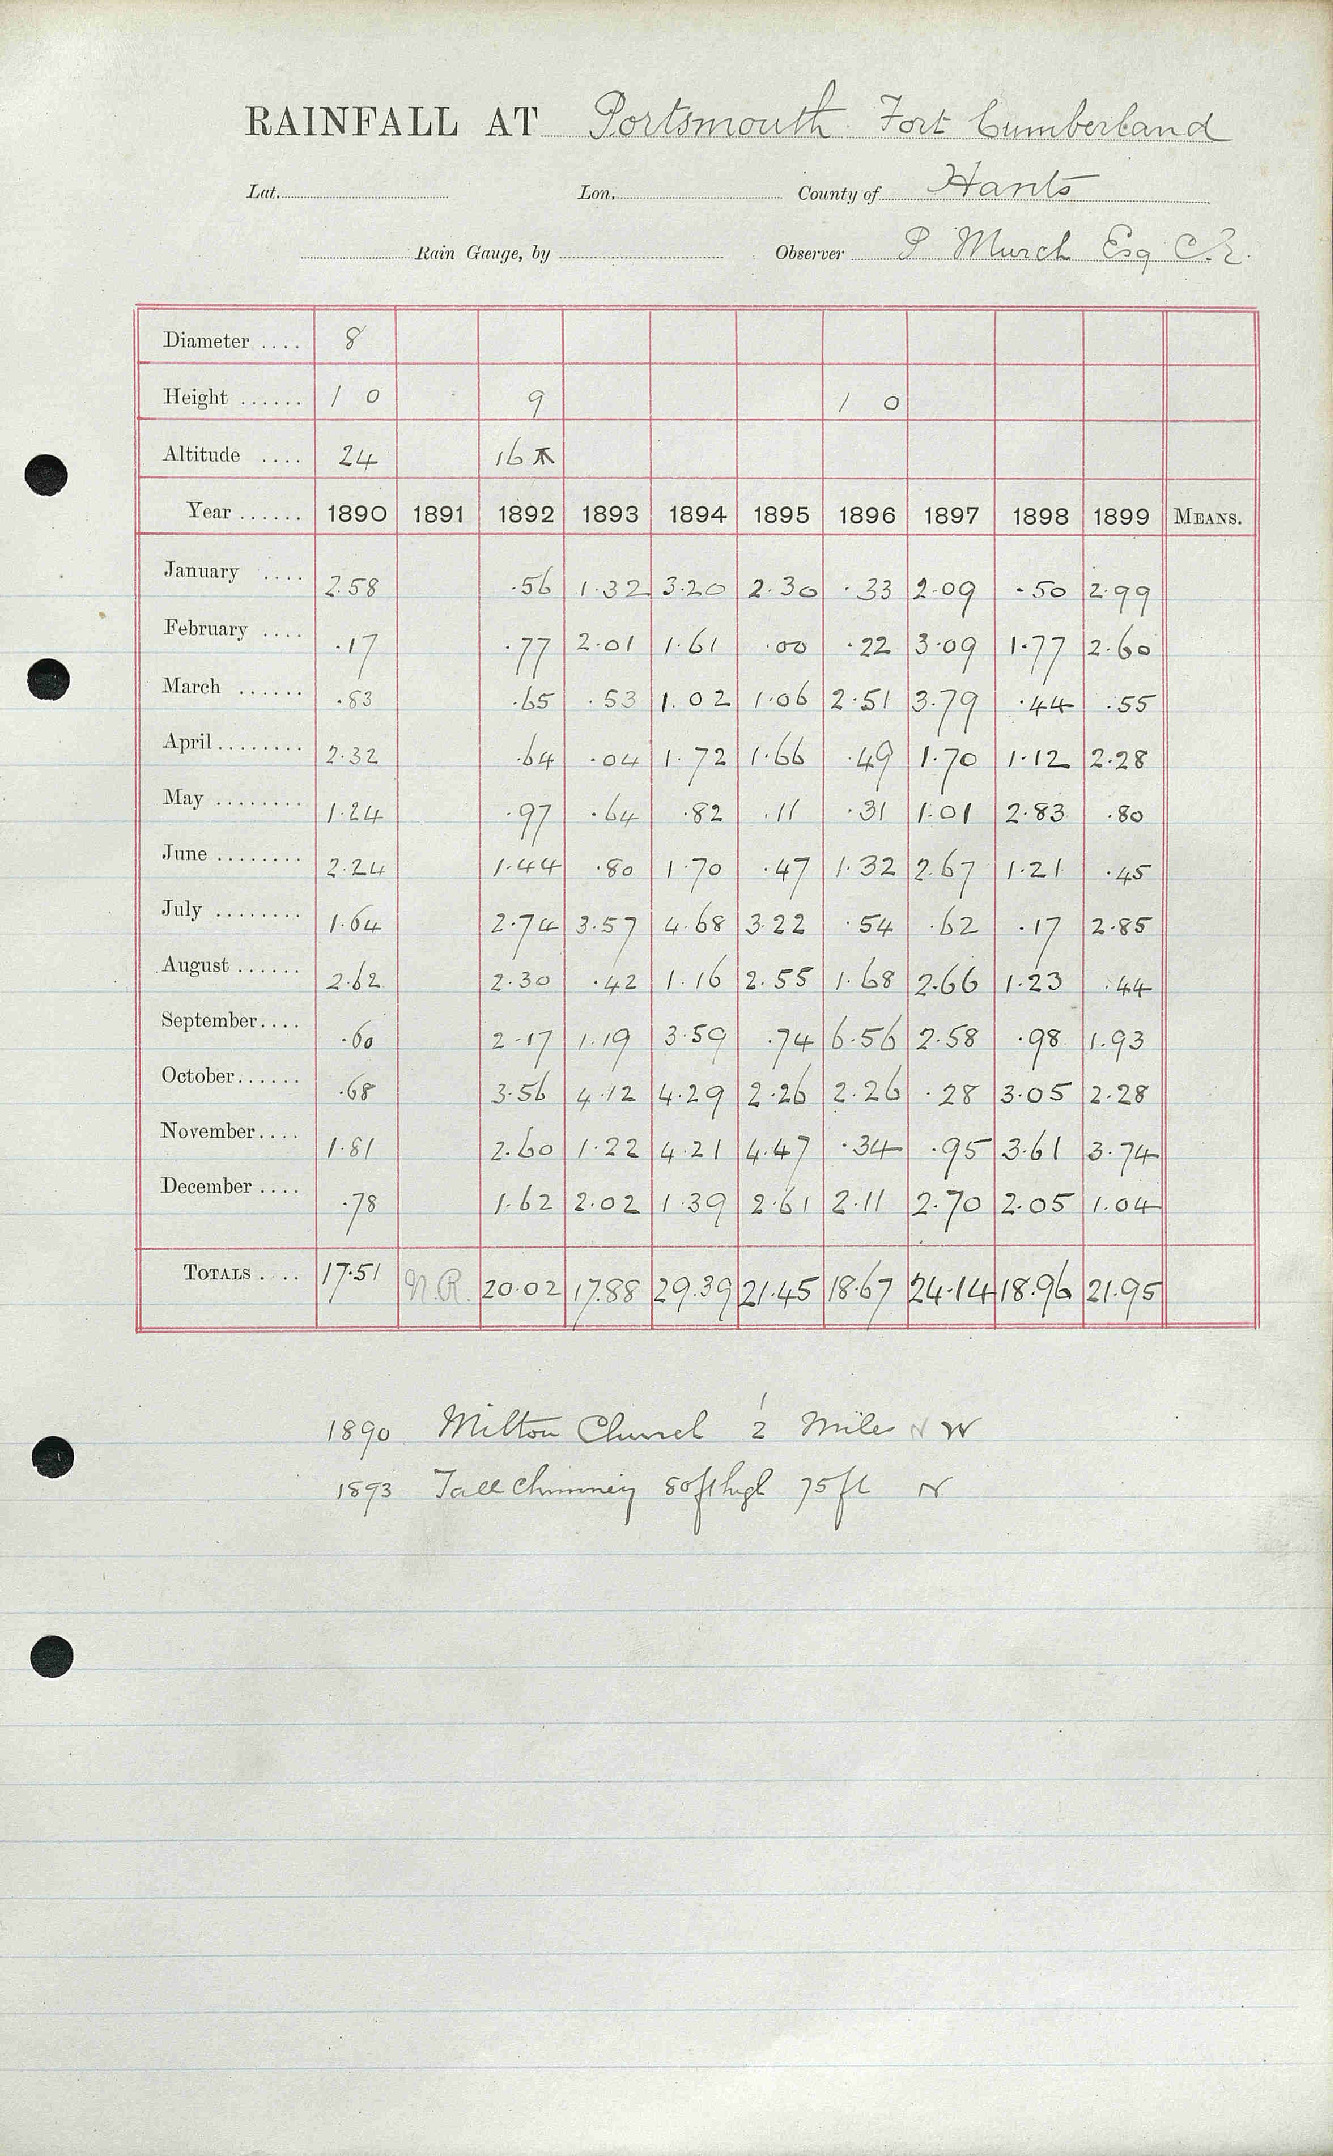 RAINFALL AT Portsmouth Fort Cumberland
Lat. Lon. County of Hants
Rain Gauge, by Observer P Murch Esq C.E.
Diameter .... 8
Height ...... 1 0 9 1 0
Altitude .... 24 16
Year ...... 1890 1891 1892 1893 1894 1895 1896 1897 1898 1899 MEANS.
January .... 2.58 .56 1.32 3.20 2.30 .33 2.09 .50 2.99
February .... .17 .77 2.01 1.61 .00 .22 3.09 1.77 2.60
March ...... .83 .65 .53 1.02 1.06 2.51 3.79 .44 .55
April ........ 2.32 .64 .04 1.72 1.66 .49 1.70 1.12 2.28
May ........ 1.24 .97 .64 .82 .11 .31 1.01 2.83 .80
June ........ 2.24 1.44 .80 1.70 .47 1.32 2.67 1.21 .45
July ........ 1.64 2.74 3.57 4.68 3.22 .54 .62 .17 2.85
August ...... 2.62 2.30 .42 1.16 2.55 1.68 2.66 1.23 .44
September .... .60 2.17 1.19 3.59 .74 6.56 2.58 .98 1.93
October ...... .68 3.56 4.12 4.29 2.26 2.26 .28 3.05 2.28
November .... 1.81 2.60 1.22 4.21 4.47 .34 .95 3.61 3.74
December .... .78 1.62 2.02 1.39 2.61 2.11 2.70 2.05 1.04
TOTALS .... 17.51 N.R. 20.02 17.88 29.39 21.45 18.67 24.14 18.96 21.95
1890 Milton Church 1/2 Mile N W
1893 Tall Chimney 80ft high 75ft N